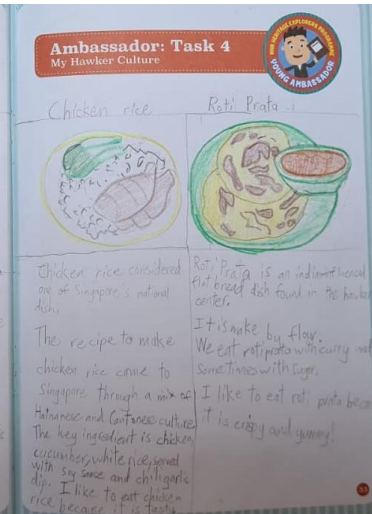 Ambassador: Task 4
My Hawker Culture
OUR HERITAGE EXPLORERS PROGRAMME
YOUNG AMBASSADOR
Chicken rice
Chicken rice considered
one of Singapore's national
dish,
The recipe to make
chicken rice came to
Singapore through a mix of
Hainanese and Cantonese culture
The key ingredient is chicken
cucumber, white rice, served
with soy sauce and chili garlic
dip. I like to eat chicken
rice because it is tasty
Roti Prata
Roti Prata is an indian
flat bread dish found in the hawker
center.
It is make by flour.
We eat roti prata with curry and
sometimes with sugar.
I like to eat roti prata
it is crispy and yummy!